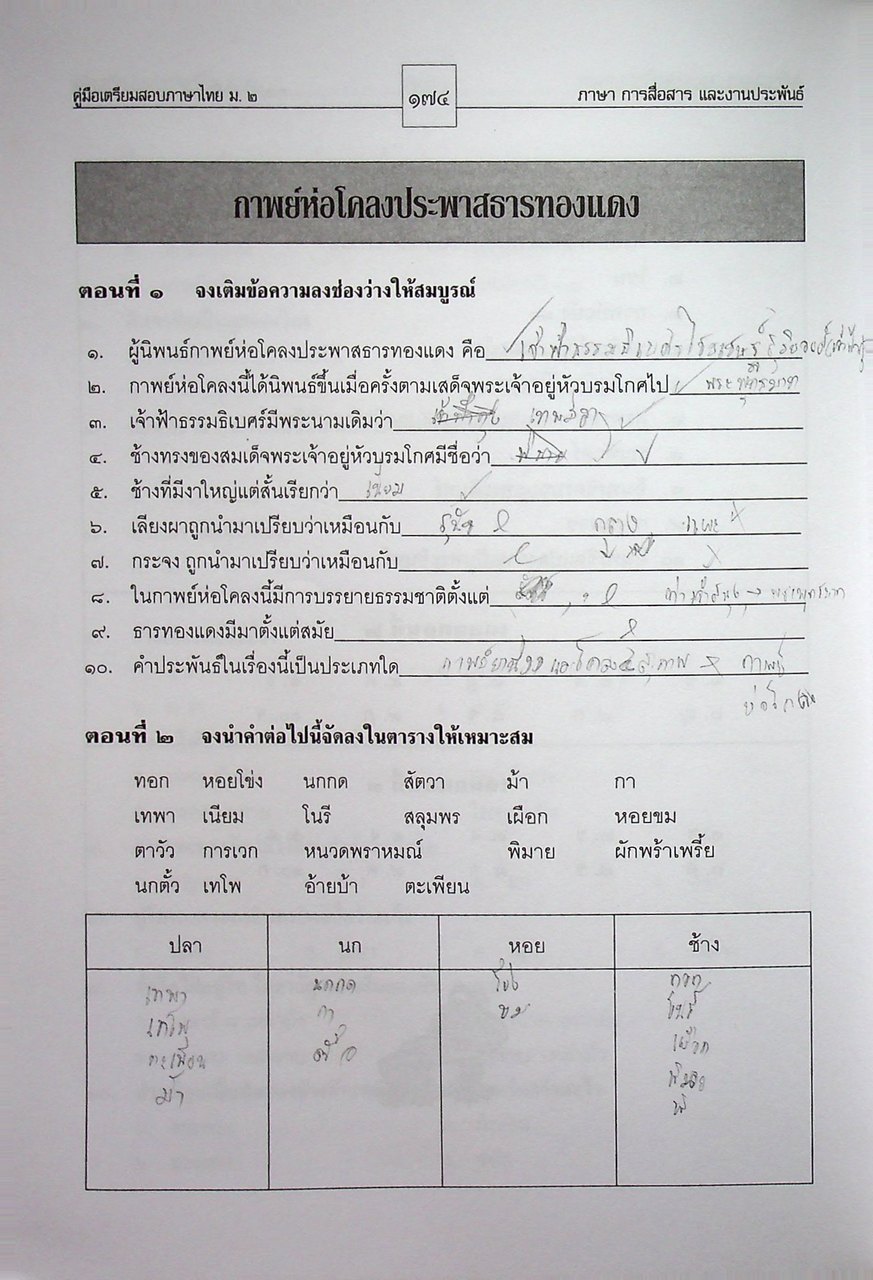 คู่มือเตรียมสอบภาษาไทย ม. ๒ ๑๗๔ ภาษา การสื่อสาร และงานประพันธ์
กาพย์ห่อโคลงประพาสธารทองแดง
ตอนที่ ๑ จงเติมข้อความลงช่องว่างให้สมบูรณ์
๑. ผู้นิพนธ์กาพย์ห่อโคลงประพาสธารทองแดง คือ เจ้าฟ้าธรรมธิเบศร
๒. กาพย์ห่อโคลงนี้ได้นิพนธ์ขึ้นเมื่อครั้งตามเสด็จพระเจ้าอยู่หัวบรมโกศไป พระพุทธบาท
๓. เจ้าฟ้าธรรมธิเบศร์มีพระนามเดิมว่า
๔. ช้างทรงของสมเด็จพระเจ้าอยู่หัวบรมโกศมีชื่อว่า
๕. ช้างที่มีงาใหญ่แต่สั้นเรียกว่า เนียม
๖. เลียงผาถูกนำมาเปรียบว่าเหมือนกับ แพะ
๗. กระจง ถูกนำมาเปรียบว่าเหมือนกับ
๘. ในกาพย์ห่อโคลงนี้มีการบรรยายธรรมชาติตั้งแต่
๙. ธารทองแดงมีมาตั้งแต่สมัย
๑๐. คำประพันธ์ในเรื่องนี้เป็นประเภทใด กาพย์
ห่อโคลง
ตอนที่ ๒ จงนำคำต่อไปนี้จัดลงในตารางให้เหมาะสม
ทอก หอยโข่ง นกกด สัตวา ม้า กา
เทพา เนียม โนรี สลุมพร เผือก หอยขม
ตาวัว การเวก หนวดพราหมณ์ พิมาย ผักพร้าเพรี้ย
นกตั้ว เทโพ อ้ายบ้า ตะเพียน
ปลา นก หอย ช้าง
เทพา นกกด โข่ง ทอก
เทโพ กา ขม โนรี
ตะเพียน ตั้ว เผือก
ม้า